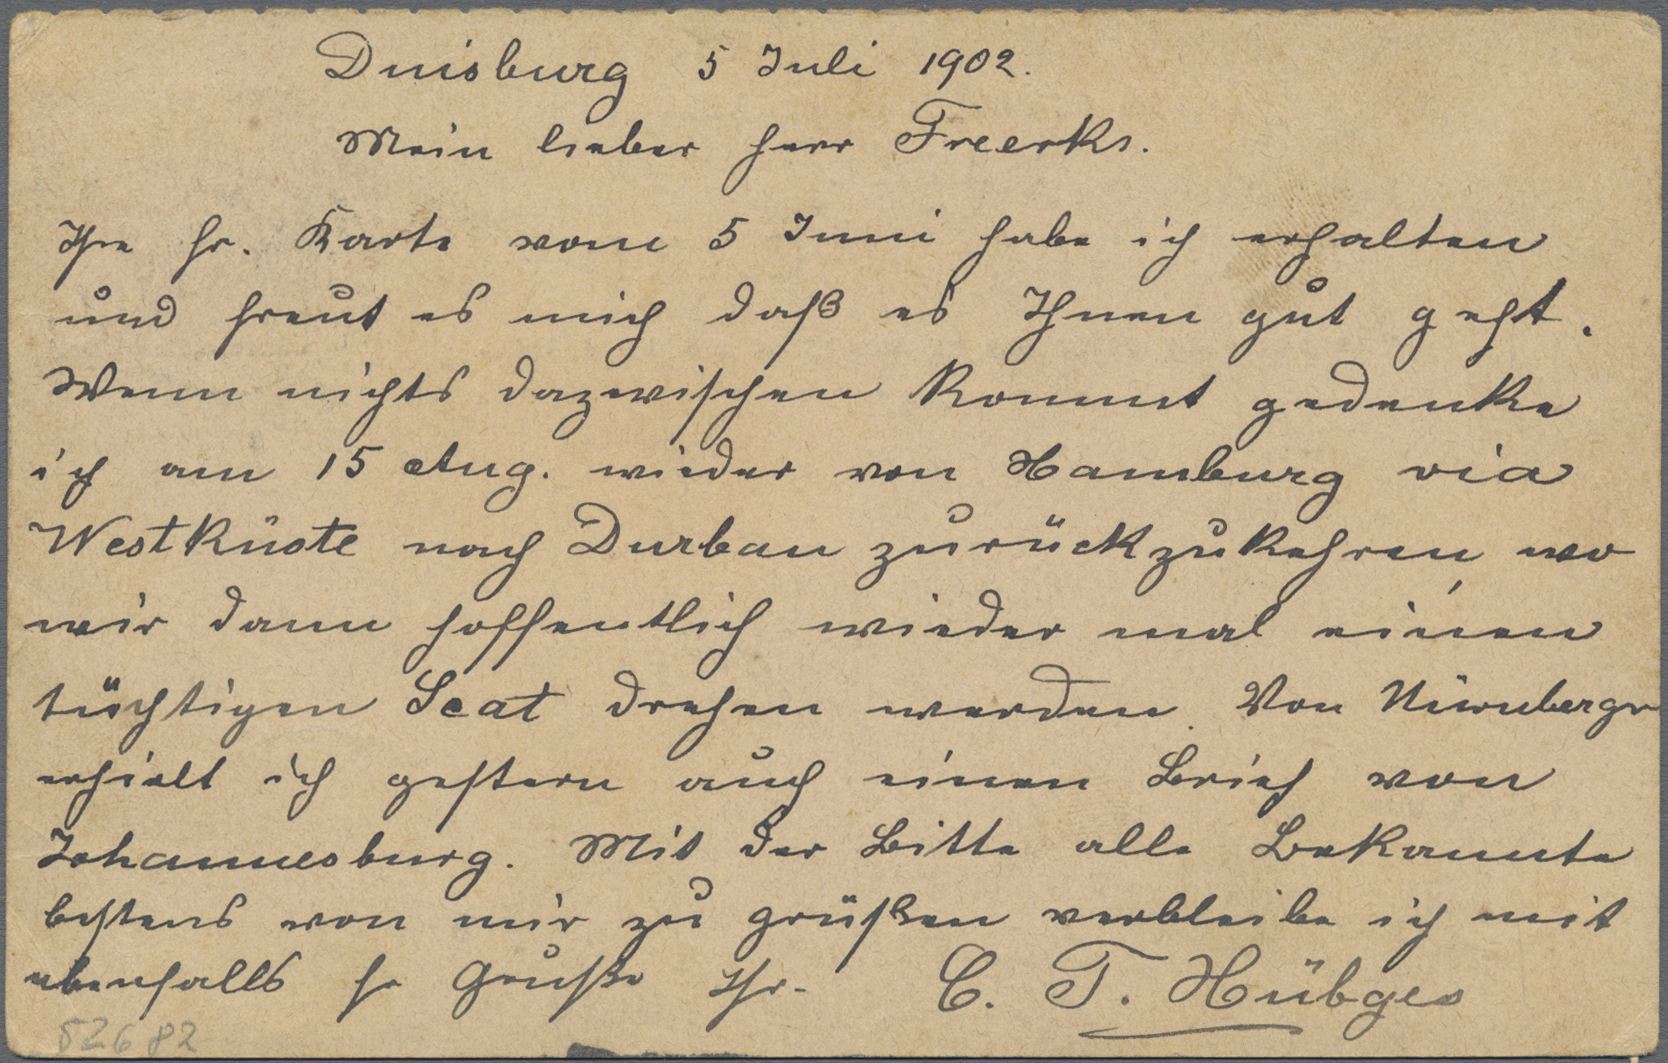 Duisburg 5 Juli 1902.
Mein lieber Herr Freerks.
Ihre fr. Karte vom 5 Juni habe ich erhalten
und freut es mich daß es Ihnen gut geht.
Wenn nichts dazwischen kommt gedenke
ich am 15 Aug. wieder von Hamburg via
Westküste nach Durban zurückzukehren wo
wir dann hoffentlich wieder mal einen
tüchtigen Scat drehen werden. Von Nürnberger
erhielt ich gestern auch einen Brief von
Johannesburg. Mit der Bitte alle Bekannte
bestens von mir zu grüßen verbleibe ich mit
ebenfalls fr Gruße Ihr.
C. T. Hübges
52682